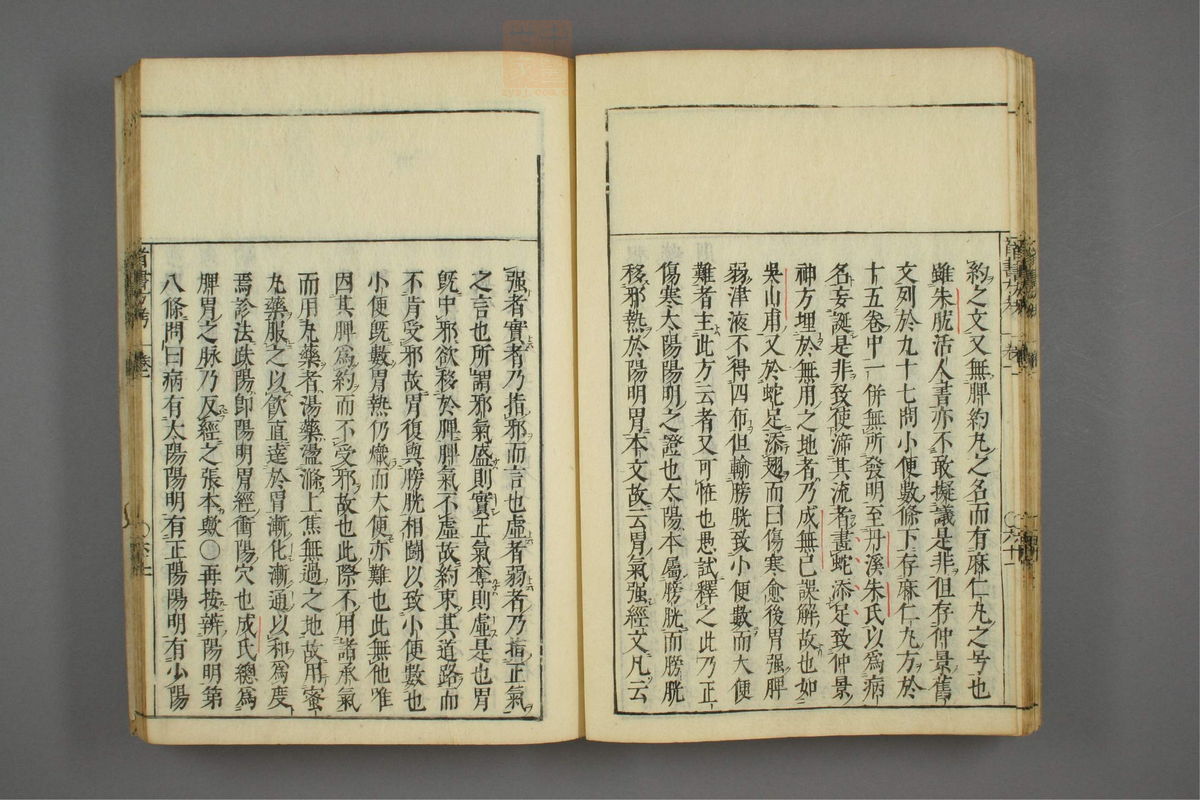 約之文又無脾約丸之名而有麻仁丸之号也
雖朱肱活人書亦不敢擬議是非但存仲景舊
文列於九十七問小便數條下存麻仁丸方於
十五卷中一併無所發明至丹溪朱氏以為病
名妄誕是非致使滯其流者畫蛇添足致仲景
神方埋於無用之地者乃成無己誤解故也如
吳山甫又於蛇足添翅而曰傷寒愈後胃强脾
弱津液不得四布但輸膀胱致小便數而大便
難者主此方云者又可恠也愚試釋之此乃正
傷寒太陽陽明之證也太陽本屬膀胱而膀胱
移邪熱於陽明胃本文故云胃氣强經文凡云
强者實者乃指邪而言也虛者弱者乃指正氣
之言也所謂邪氣盛則實正氣奪則虛是也胃
旣中邪欲移於脾脾氣不虛故約束其道路而
不肯受邪故胃復與膀胱相鬪以致小便數也
小便旣數胃熱仍熾而大便亦難也此無他唯
因其脾爲約而不受邪故也此際不用諸承氣
而用丸藥者湯藥盪滌上焦無過之地故用蜜
丸藥服之以飲直達於胃漸化漸通以和爲度
焉診法趺陽卽陽明胃經衝陽穴也成氏總爲
脾胃之脉乃反經之張本歟○再按辨陽明第
八條問曰病有太陽陽明有正陽陽明有少陽